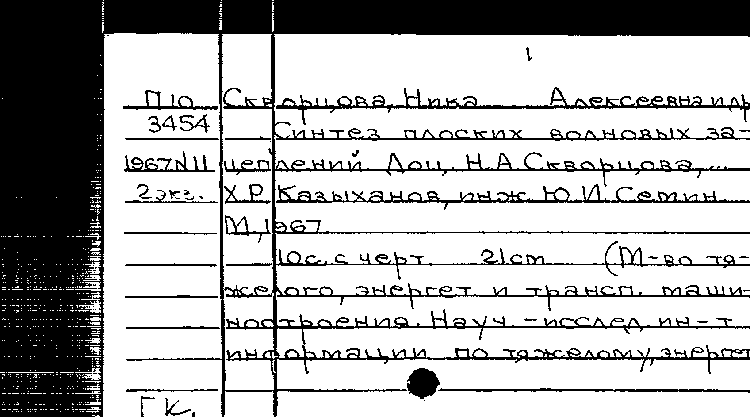 1
П10 Скворцова, Ника Алексеевна и др
3454 Синтез плоских волновых за-
1967 N11 цеплений Доц. Н.А.Скворцова,...
2 экз. Х.Р. Казыханов, инж. Ю.И.Семин
М., 1967.
10с. с черт. 21cm (М-во тя-
желого, энергет и трансп. маши-
ностроения. Науч.-исслед. ин-т
информации по тяжелому, энергет
ГК.